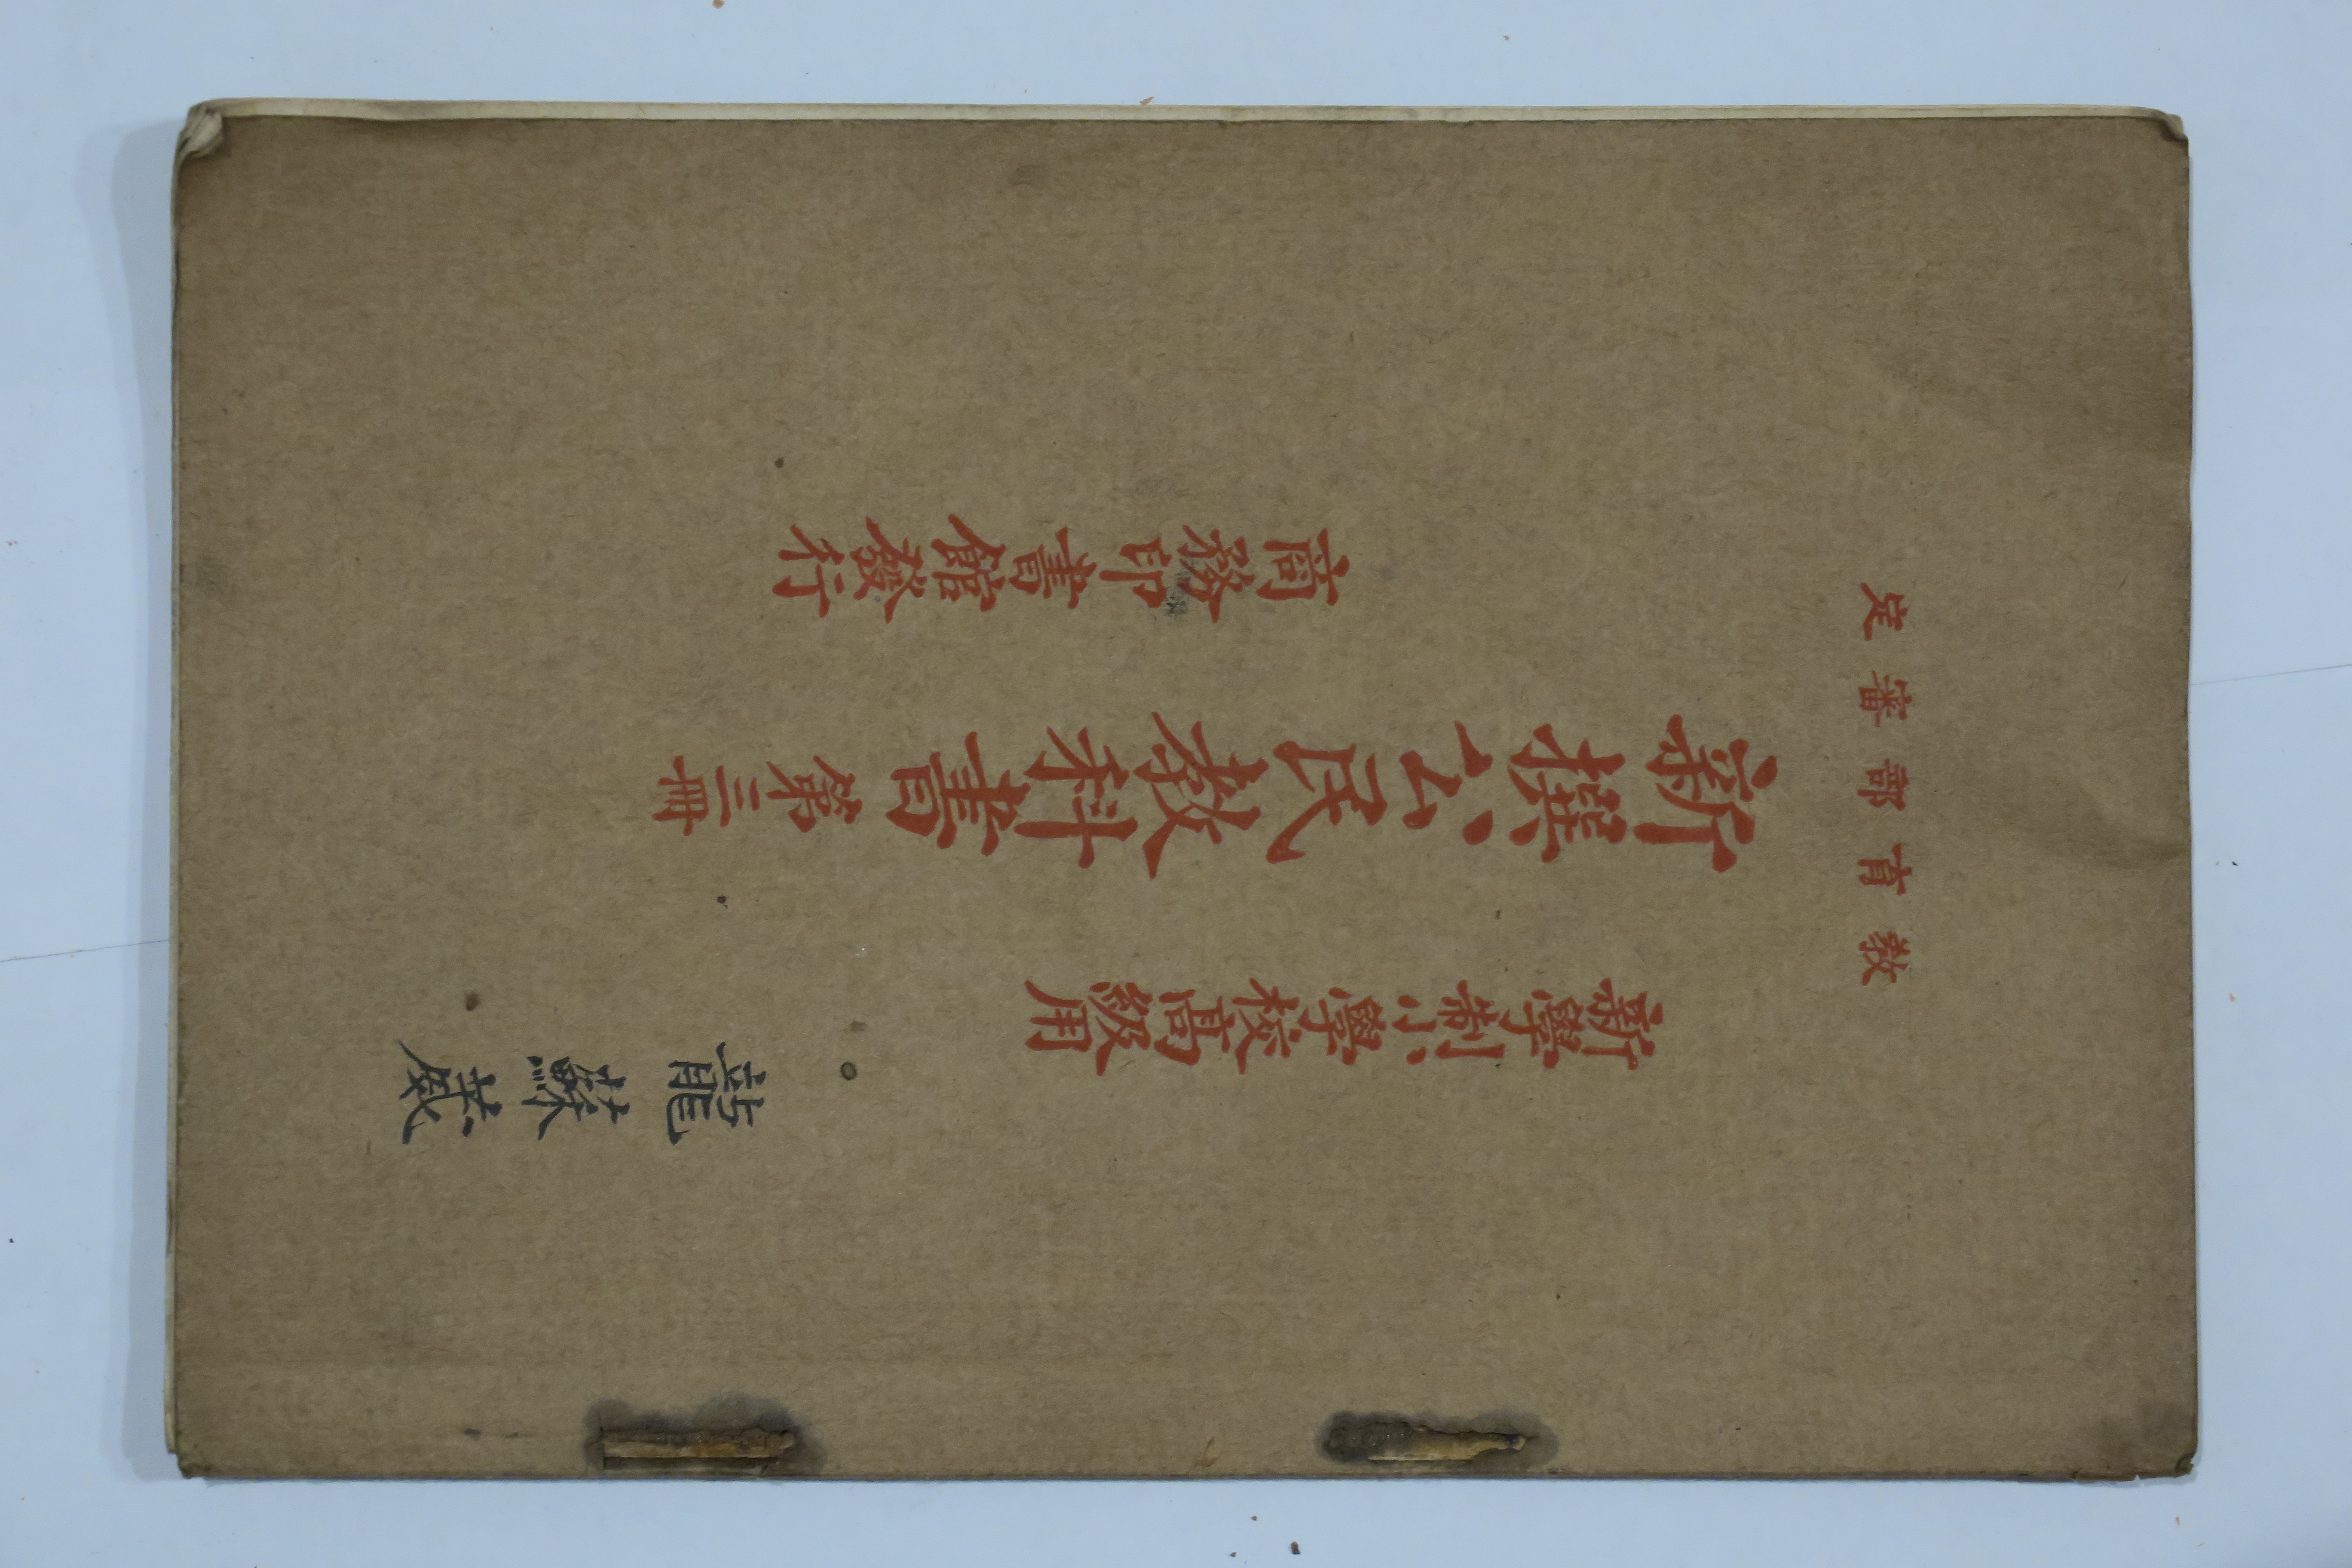 教育部審定
新學制小學校高級用
新撰公民教科書 第三冊
商務印書館發行
龍蘇葳